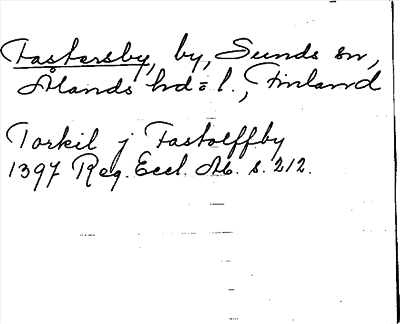 Fastersby, by, Sunds sn,
Ålands hd = l., Finland
Torkil j Fastolffby
1397 Reg. Eccl. Ab. s. 212.